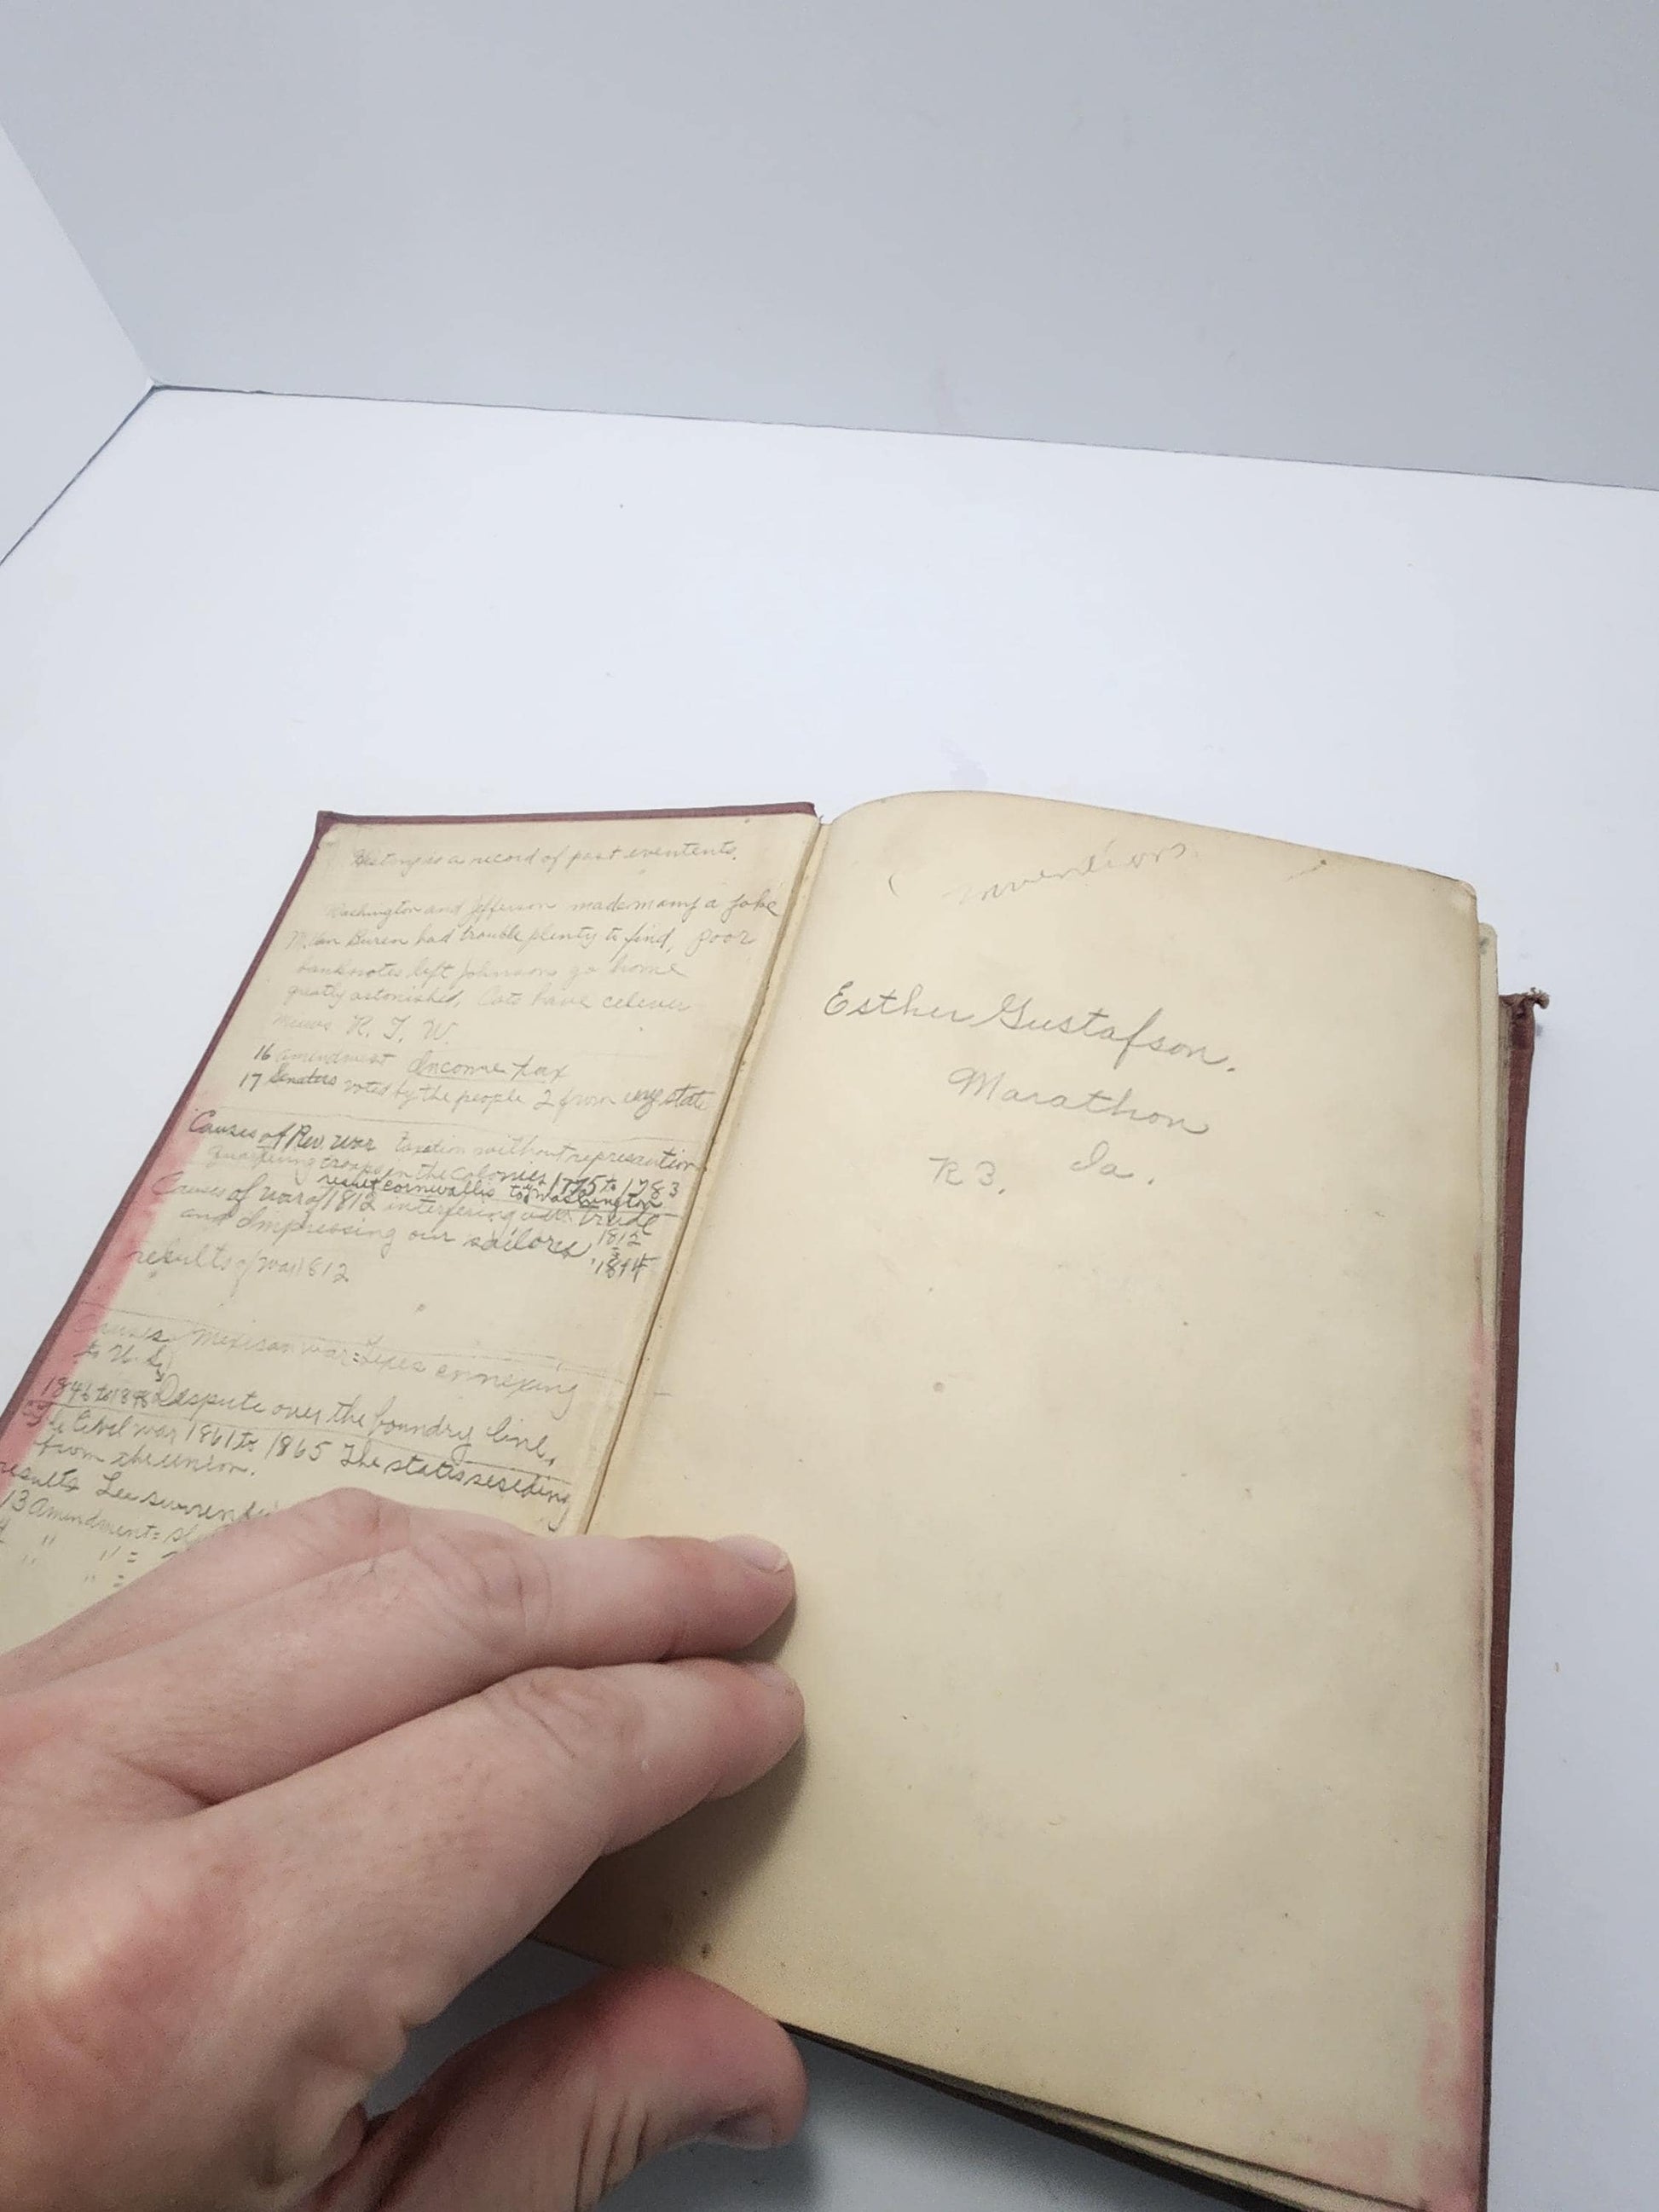 History is a record of past eventents.
Washington and Jefferson made many a joke
M. Van Buren had trouble plenty to find, poor
banknotes left Johnson go home
greatly astonished, Cats have celever
R. T. W.
16 amendment Income tax
17 Senators voted by the people 2 from evey state
Causes of Rev. war taxation without represention
quartering troops in the Colonies 1775 to 1783
result cornwallis to Washington
Causes of war of 1812 interfering with trade
and Impressing our sailores 1812
to
1814
results of war 1812
Causes Mexican war = Texes annexing
to U. S.
1846 to 1848 Despute over the boundry line.
Civel war 1861 to 1865 The states seseding
from the union.
results Lee
13 amendment =
" " =
" " =
inventions
Esther Gustafson.
Marathon
R 3. Ia.